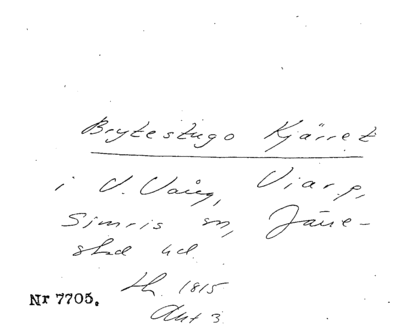 Brytestugo Kjärret
i V. Vång, Viarp,
Simris sn, Järre-
stad hd.
Lh. 1815
Akt 3.
Nr 7705.